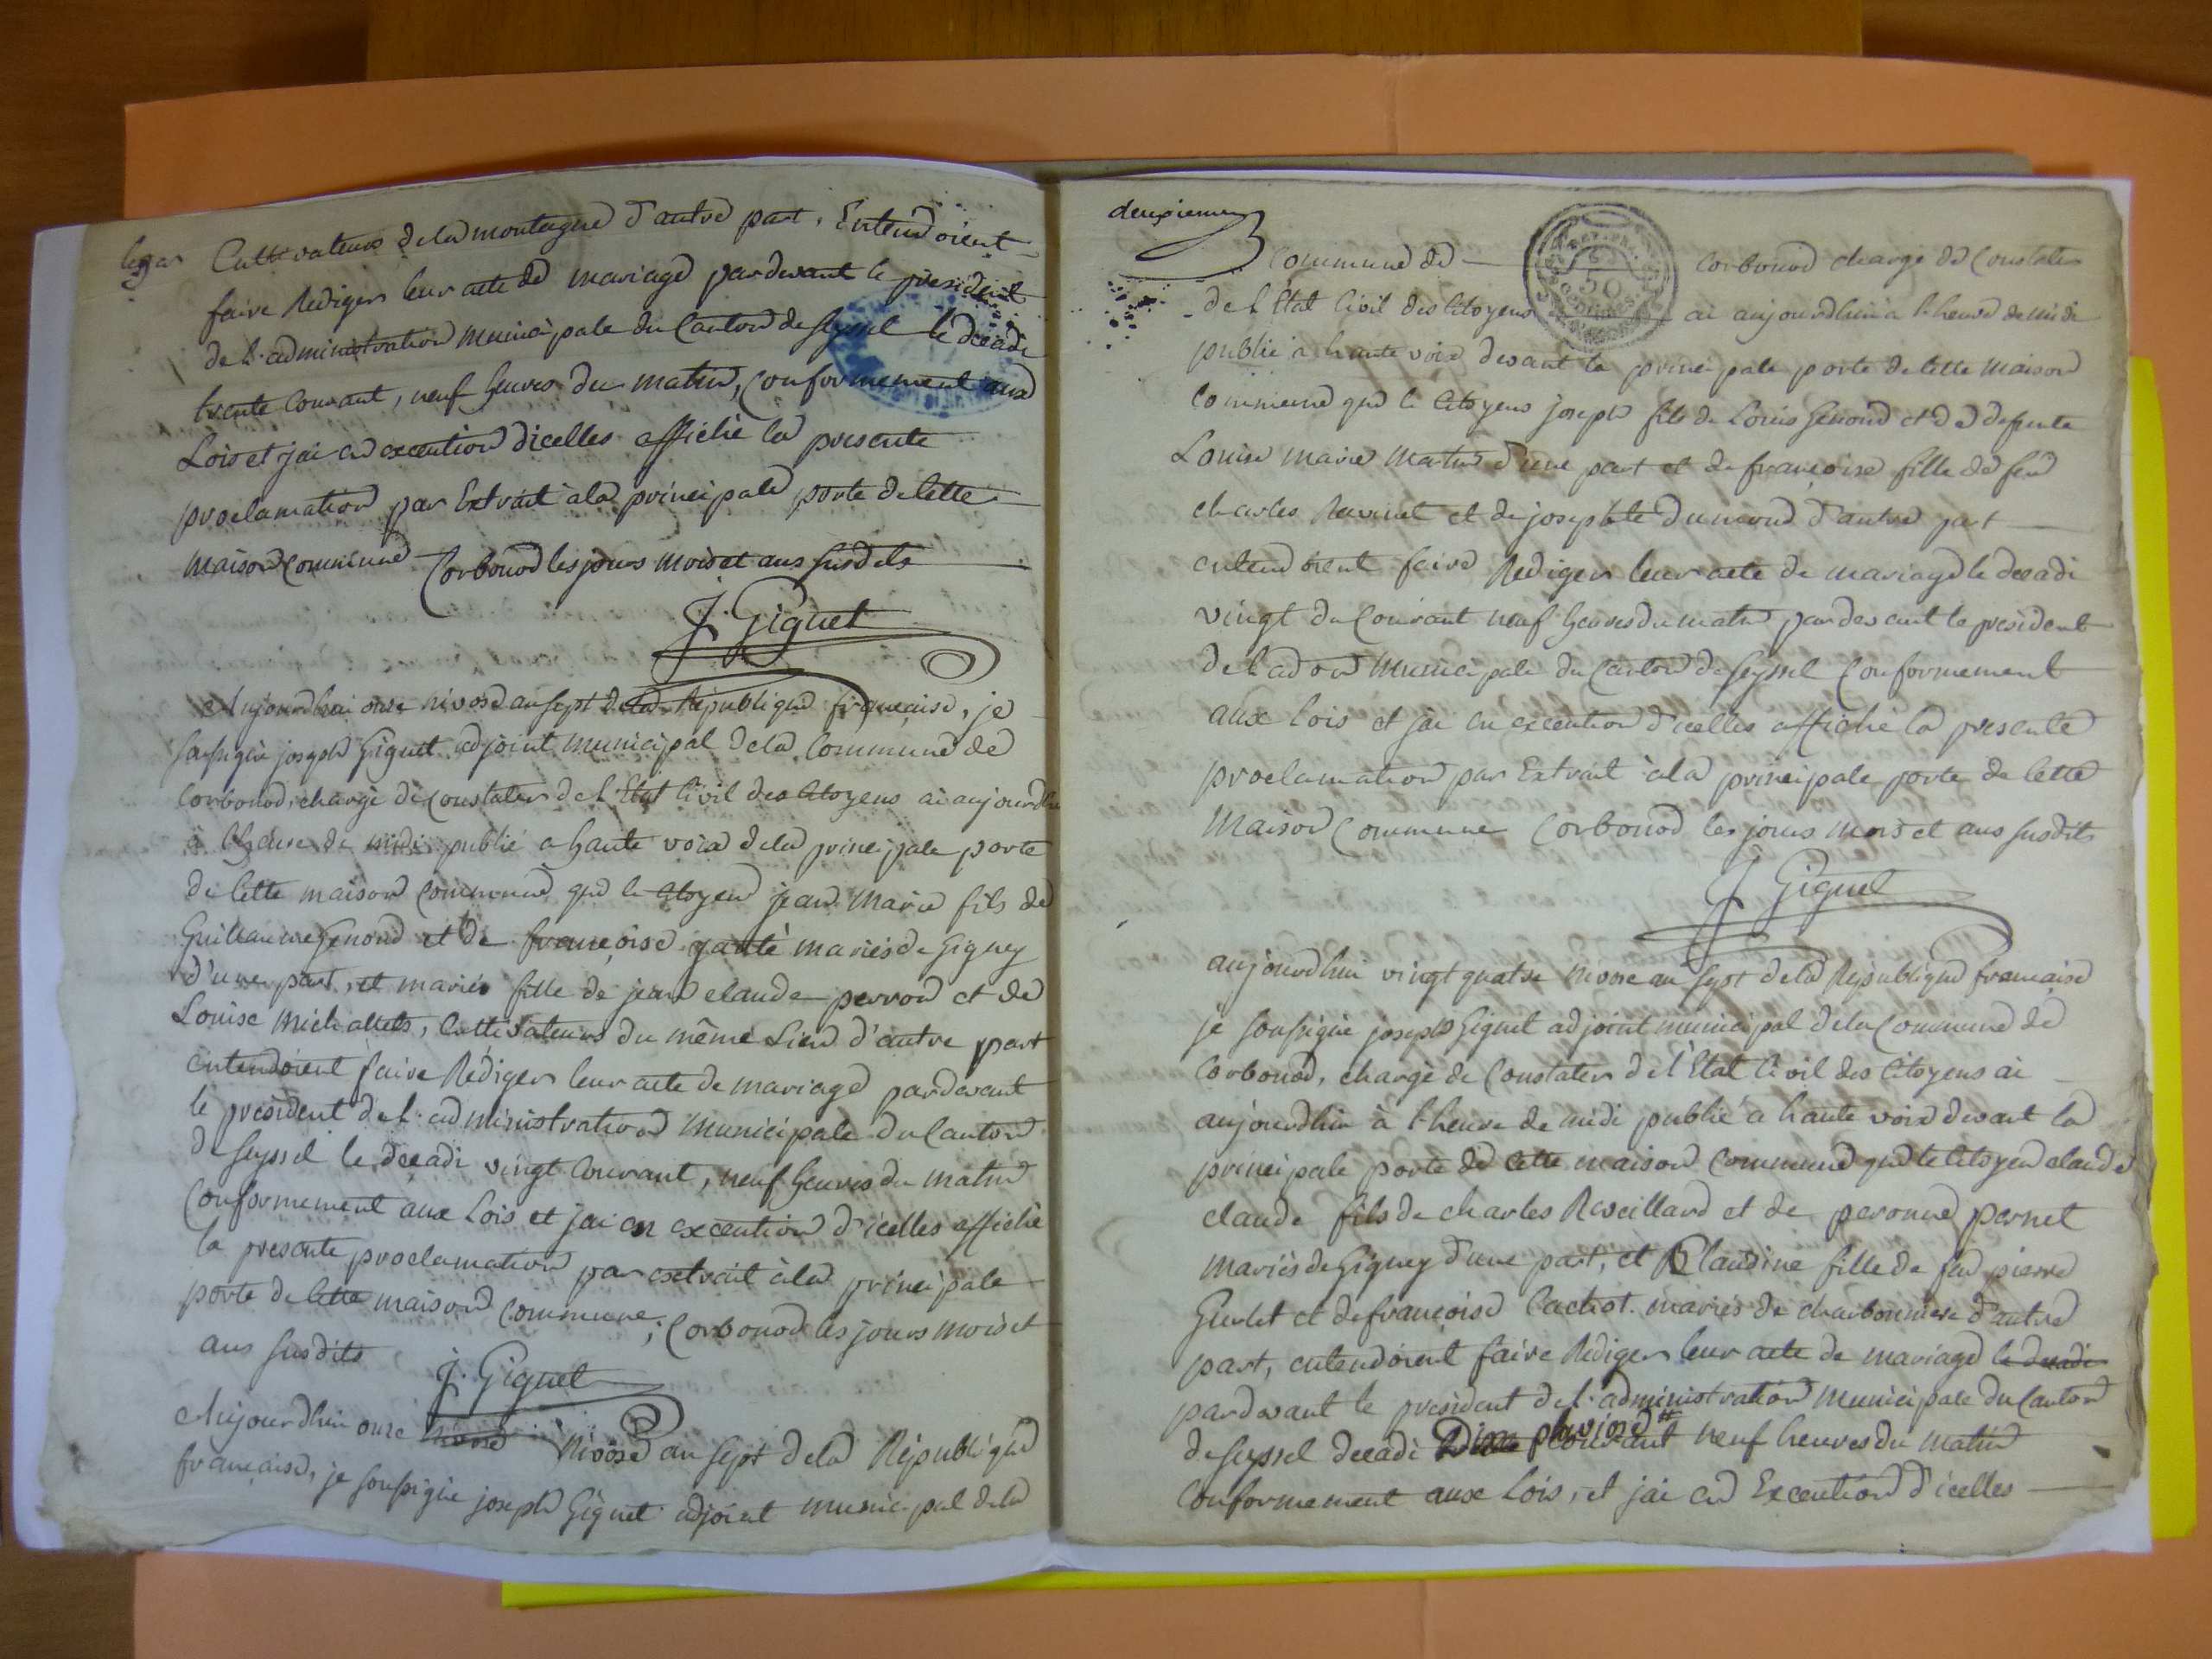 Cultivateurs de la montagne d'autre part, Entendoient
faire Rediger leur acte de mariage pardevant le president
de l'administration municipale du Canton de Seyssel le decadi
trente Courant, neuf heures du matin, conformement aux
Lois et jai en execution d'icelles affiché la presente
proclamation par Extrait à la principale porte de Cette
maison commune Corbonod les jours mois et ans susdits
J. Giguet
Aujourdhui onze nivose an sept de la République française, je
soussigné joseph Giguet adjoint municipal de la Commune de
Corbonod, chargé de constater de l'Etat Civil des Citoyens ai aujourdhui
à l'heure de midi publié a haute voix de la principale porte
de Cette maison commune que le Citoyen jean marie fils de
Guillaume Genoud et de françoise mariés de Gigney
d'une part, et marie fille de jean claude perron et de
Louise Cultivateurs du même Lieu d'autre part
entendoient faire Rediger leur acte de mariage pardevant
le president de l'administration Municipale du Canton
de Seyssel le decadi vingt Courant, neuf heures du matin
Conformement aux Lois et jai en execution d'icelles affiché
la presente proclamation par extrait à la principale
porte de Cette maison commune; Corbonod les jours mois et
ans susdits
J. Giguet
Aujourdhui onze nivose Nivose an sept de la République
française, je soussigné joseph Giguet adjoint municipal de la
deuxieme
Commune de Corbonod chargé de Constater
de l'Etat Civil des Citoyens ai aujourdhui à l'heure de midi
publié a haute voix devant la principale porte de Cette maison
commune que le Citoyens joseph fils de Louis Genoud et de defunte
Louise marie Martin d'une part et de françoise fille de feu
charles Ravinet et de josephte Dumond d'autre part
entendoient faire Rediger leur acte de mariage le decadi
vingt du Courant neuf heures du matin pardevant le president
de l'adon Municipale du Canton de Seyssel Conformement
aux lois et jai en execution d'icelles affiché la presente
proclamation par Extrait à la principale porte de Cette
Maison Commune Corbonod les jours mois et ans susdits
J. Giguet
aujourdhui vingt quatre nivose an sept de la République francaise
je soussigné joseph Giguet adjoint municipal de la Commune de
Corbonod, chargé de Constater de l'Etat Civil des Citoyens ai
aujourdhui à l'heure de midi publié a haute voix devant la
principale porte de Cette maison Commune que le Citoyen claude
claude fils de charles Reveillard et de peronne pernet
mariés de Gigney d'une part, et Claudine fille de feu pierre
Gurlet et de françoise Cachot mariés de charbonniere d'autre
part, entendoient faire Rediger leur acte de mariage le decadi
pardevant le president de l'administration municipale du Canton
de Seyssel decadi Dix pluviose neuf heures du matin
Conformement aux Lois, et jai en Execution d'icelles